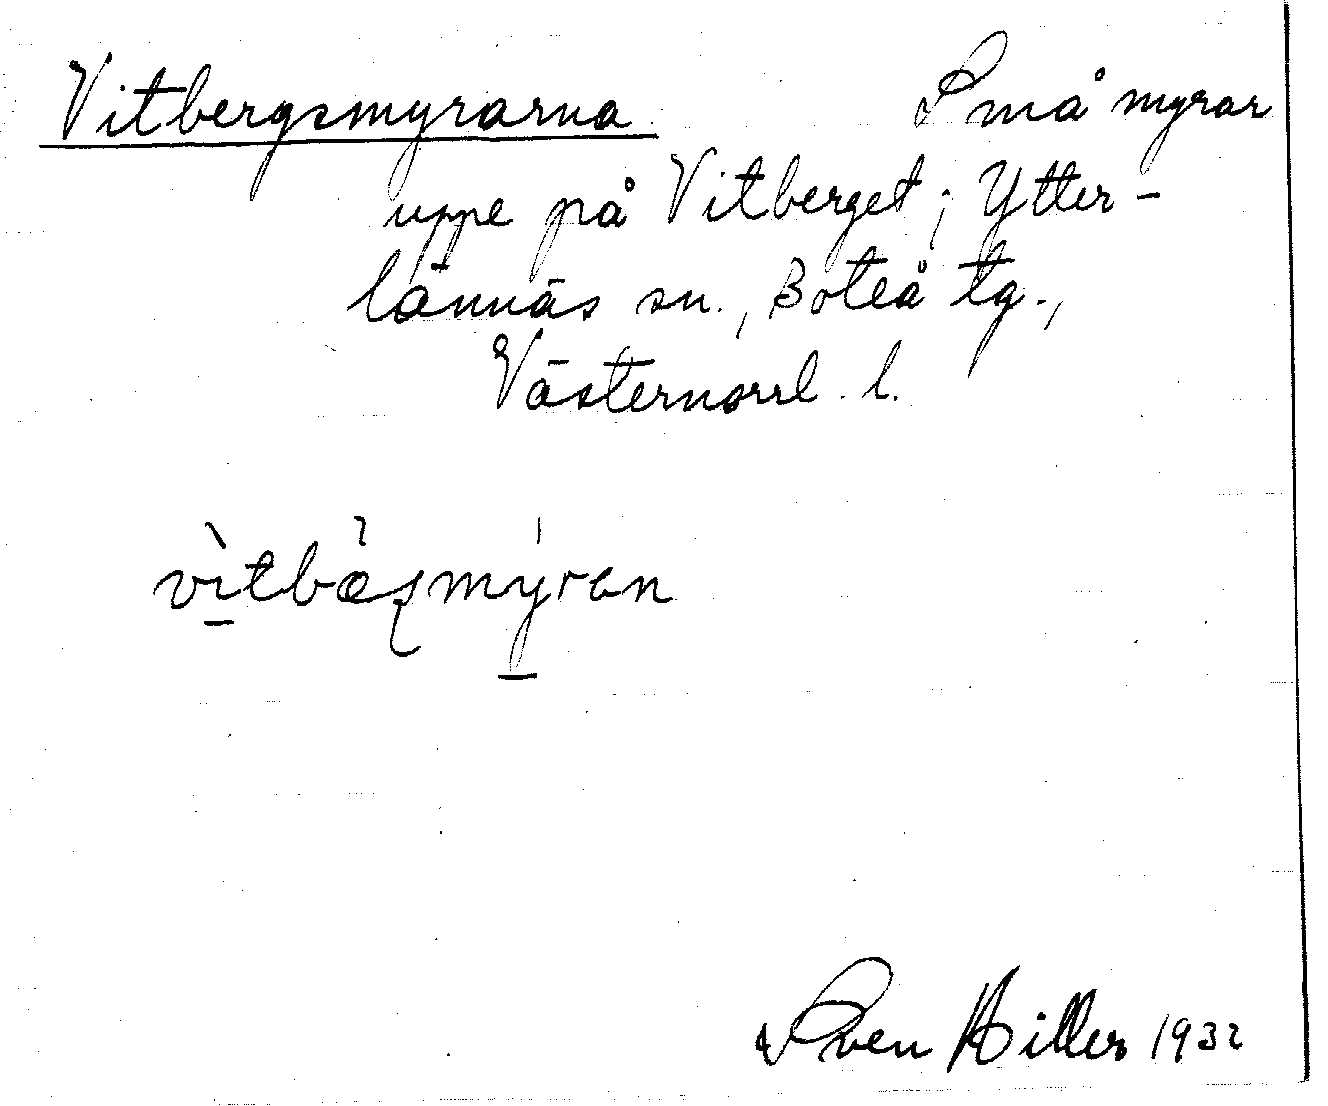 Vitbergsmyrarna Små myrar
uppe på Vitberget; Ytter-
lännäs sn., Boteå tg.,
Västernorrl. l.
Sven Hiller 1932